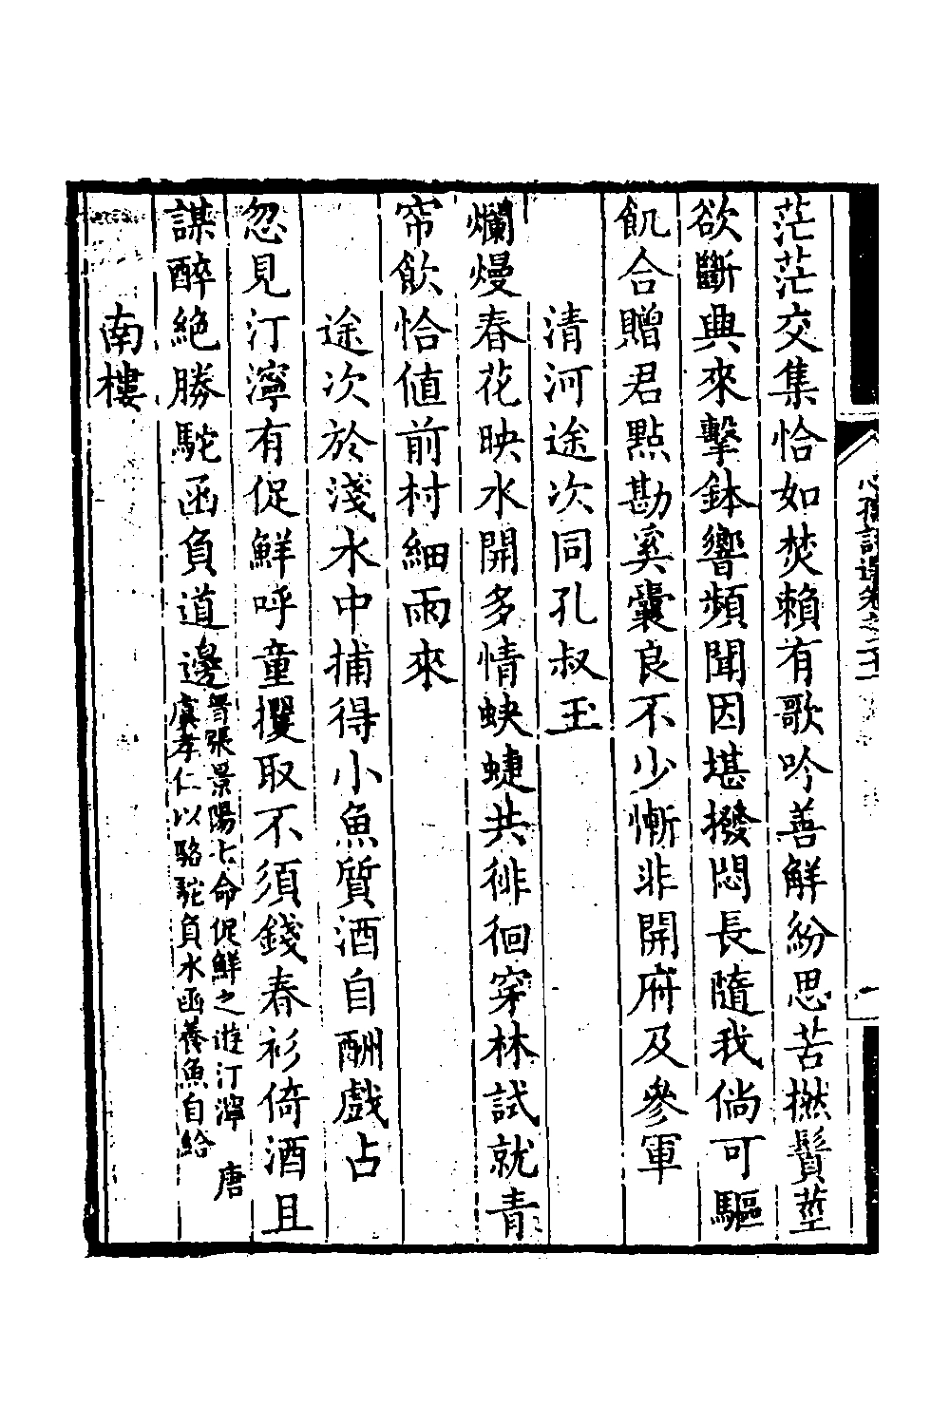 茫茫交集恰如焚賴有歌吟善解紛思苦撚鬚莖
欲斷典來擊鉢響頻聞因堪撥悶長隨我倘可驅
飢合贈君點勘奚囊良不少慚非開府及參軍
清河途次同孔叔玉
爛熳春花映水開多情蛺蜨共徘徊穿林試就青
帘飲恰値前村細雨來
途次於淺水中捕得小魚質酒自酬戲占
忽見汀濘有促鮮呼童攫取不須錢春衫倚酒且
謀醉絶勝駝函負道邊
晉張景陽七命促鮮之遊汀濘 唐
虞孝仁以駱駝負水函養魚自給
南樓